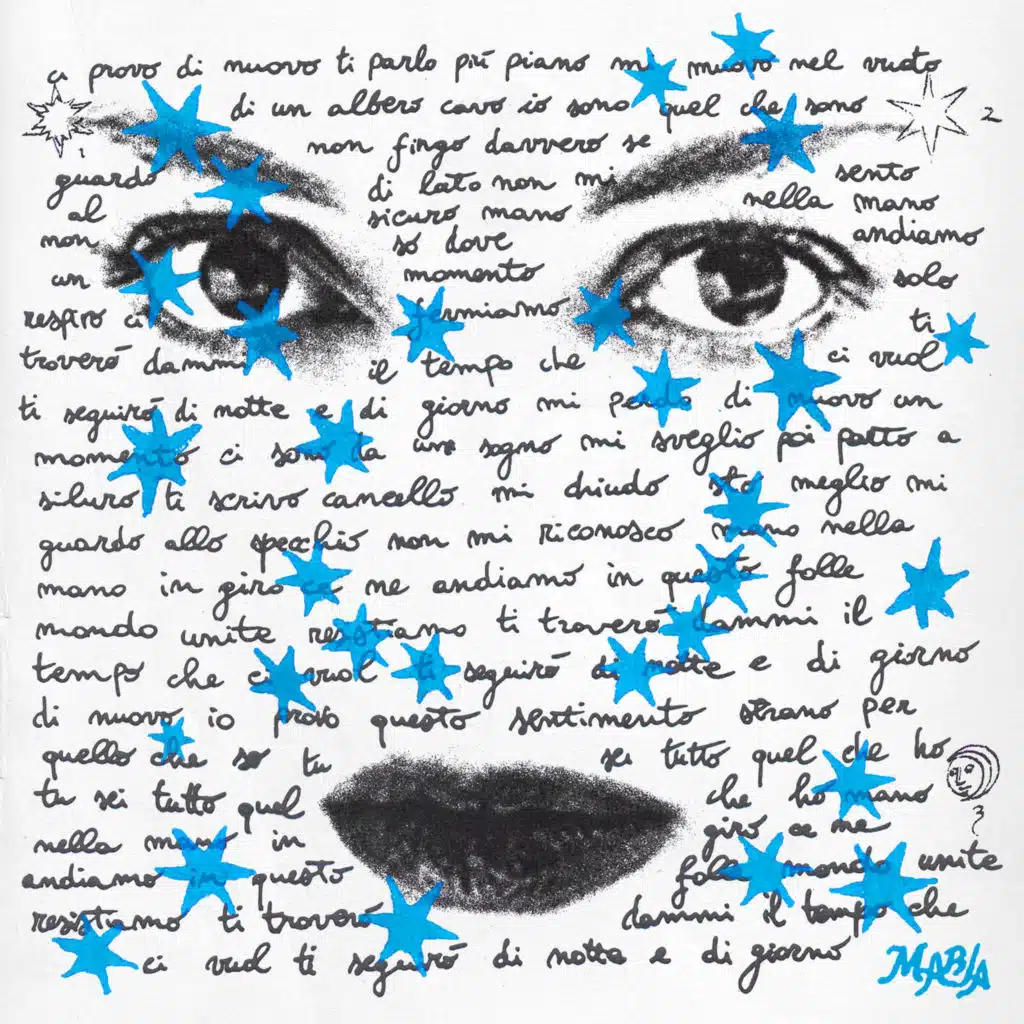 ci provo di nuovo ti parlo più piano mi muovo nel vuoto
di un albero cavo io sono quel che sono
1
2
non fingo davvero se
guardo di lato non mi sento
al sicuro mano nella mano
non so dove andiamo
un momento solo
respiro ci fermiamo ti
troverò dammi il tempo che ci vuol
ti seguirò di notte e di giorno mi perdo di nuovo un
momento ci sono da un sogno mi sveglio poi parto a
siluro ti scrivo cancello mi chiudo sto meglio mi
guardo allo specchio non mi riconosco mano nella
mano in giro ce ne andiamo in questo folle
mondo unite resistiamo ti troverò dammi il
tempo che ci vuol ti seguirò di notte e di giorno
di nuovo io provo questo sentimento strano per
quello che so tu sei tutto quel che ho
tu sei tutto quel che ho mano
3
nella mano in giro ce ne
andiamo in questo folle mondo unite
resistiamo ti troverò dammi il tempo che
ci vuol ti seguirò di notte e di giorno
MABIA